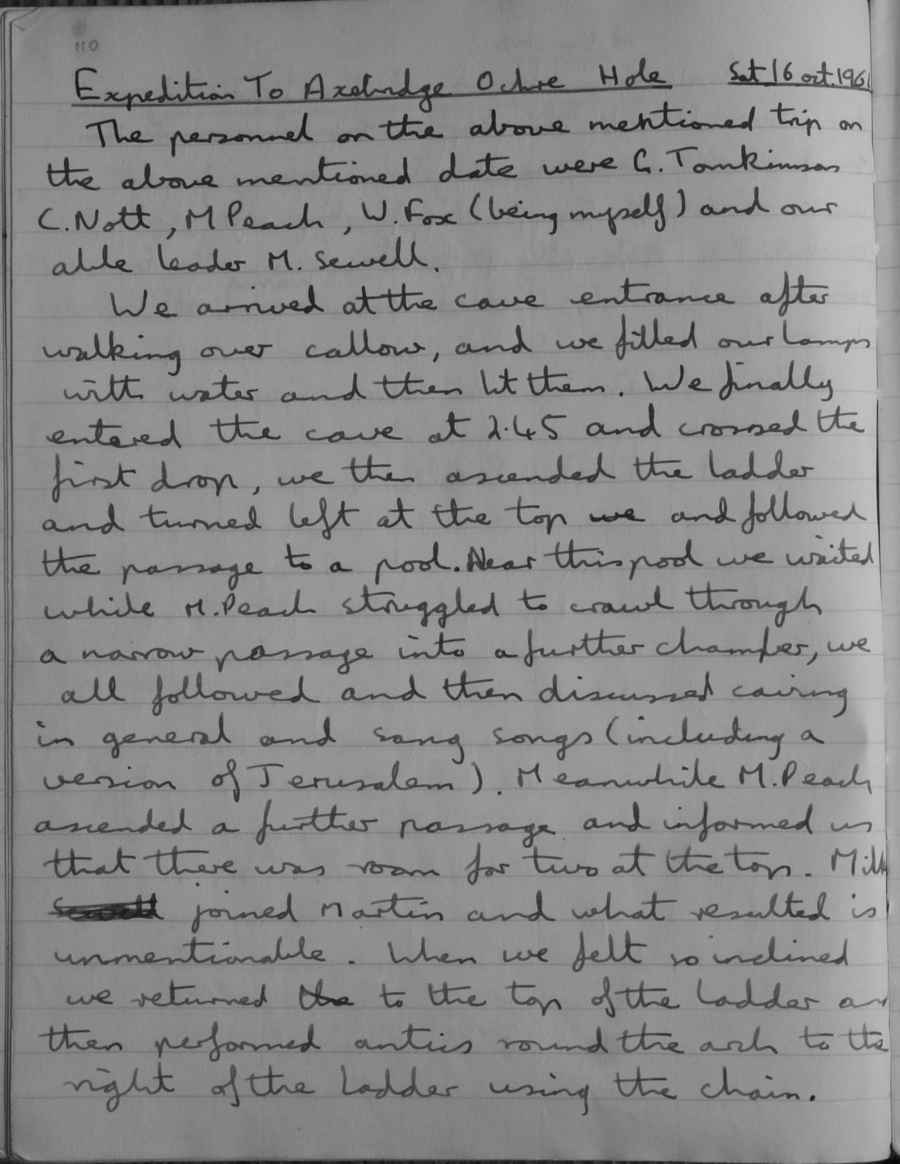 110
Expedition To Axebridge Ochre Hole Sat 16 oct. 196
The personnel on the above mentioned trip on
the above mentioned date were G. Tomkinson
C. Nott, M Peach, W. Fox (being myself) and our
able leader M. Sewell.
We arrived at the cave entrance after
walking over callow, and we filled our lamps
with water and then lit them. We finally
entered the cave at 2.45 and crossed the
first drop, we then ascended the ladder
and turned left at the top we and followed
the passage to a pool. Near this pool we waited
while M. Peach struggled to crawl through
a narrow passage into a further chamber, we
all followed and then discussed caving
in general and sang songs (including a
version of Jerusalem). Meanwhile M. Peach
ascended a further passage and informed us
that there was room for two at the top.
joined Martin and what resulted is
unmentionable. When we felt so inclined
we returned the to the top of the ladder an
then performed antics round the arch to the
right of the ladder using the chain.